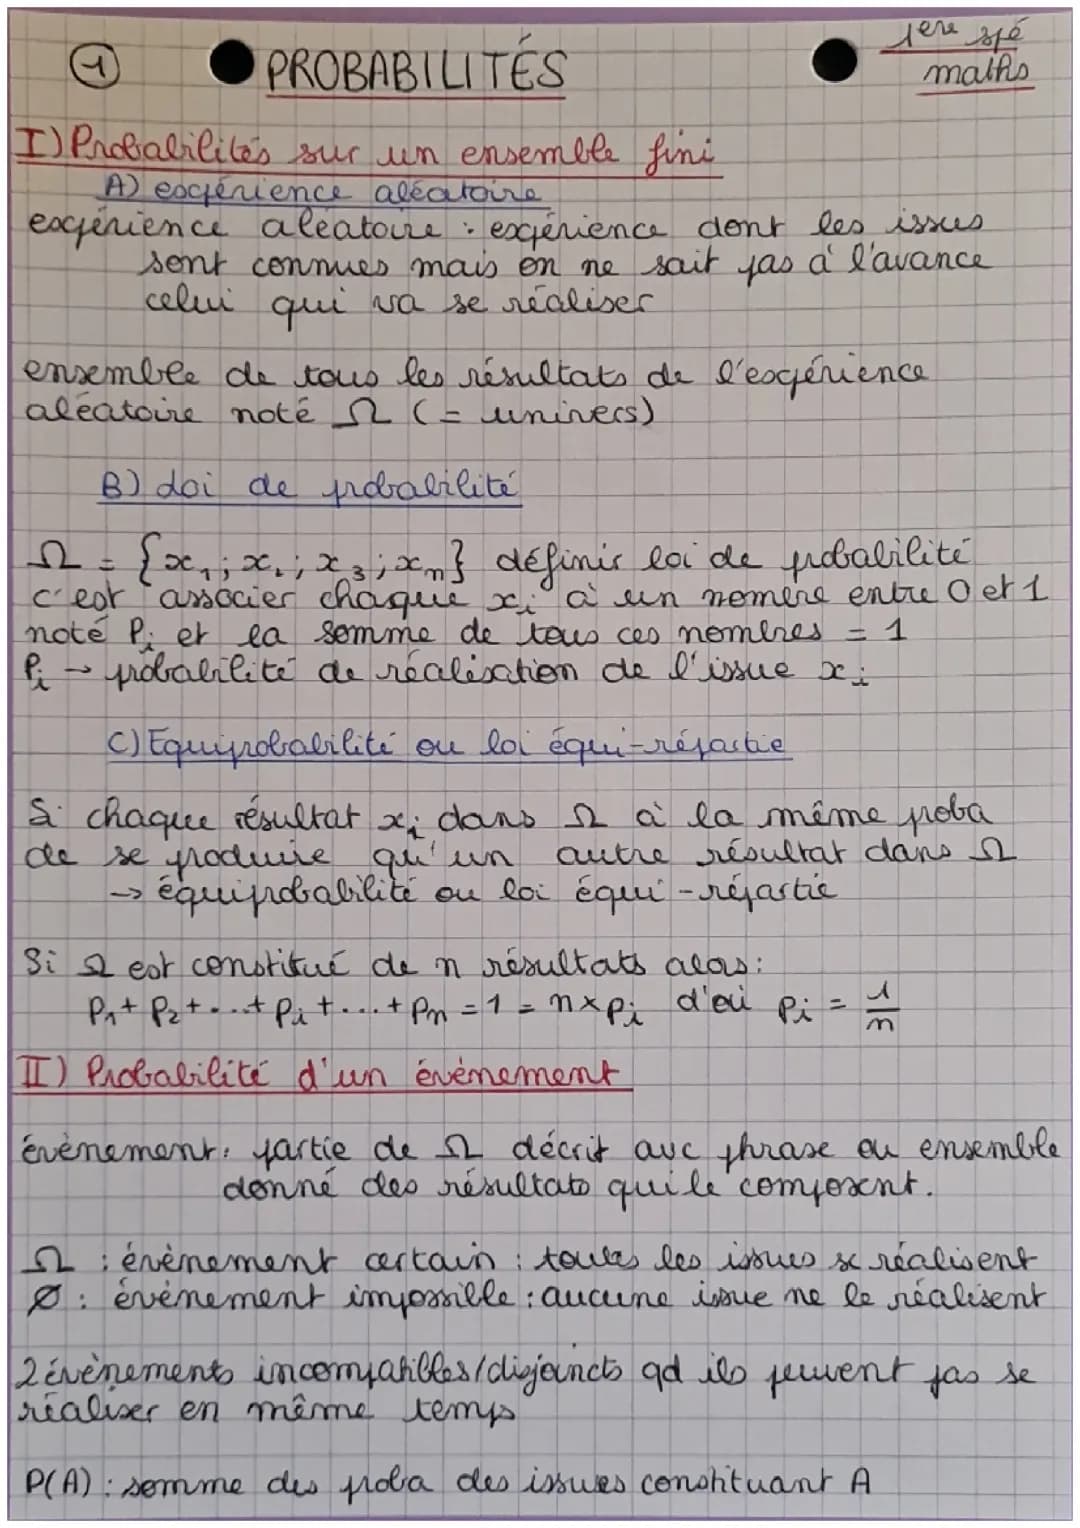 1
PROBABILITÉS
1ere spé
maths
I) Probabilités sur un ensemble fini
A) expérience aléatoire
expérience aléatoire : expérience dont les issues
sont connues mais on ne sait pas à l'avance
celui qui va se réaliser
ensemble de tous les résultats de l'expérience
aléatoire noté Ω (= univers)
B) Loi de probabilité
Ω = {x₁; x₂; x₃; xₙ} définir loi de probabilité
c'est associer chaque xᵢ à un nombre entre 0 et 1
noté Pᵢ et la somme de tous ces nombres = 1
Pᵢ → probabilité de réalisation de l'issue xᵢ
C) Equiprobabilité ou loi équi-répartie
Si chaque résultat xᵢ dans Ω à la même proba
de se produire qu'un autre résultat dans Ω
→ équiprobabilité ou loi équi-répartie
Si Ω est constitué de n résultats alors :
P₁ + P₂ + ... + Pᵢ + ... + Pₙ = 1 = n × Pᵢ d'où Pᵢ = 1/n
II) Probabilité d'un évènement
évènement : partie de Ω décrit avc phrase ou ensemble
donné des résultats qui le composent.
Ω : évènement certain : toutes les issues se réalisent
Ø : évènement impossible : aucune issue ne le réalisent
2 évènements incompatibles/disjoincts qd ils peuvent pas se
réaliser en même temps
P(A) : somme des proba des issues constituant A